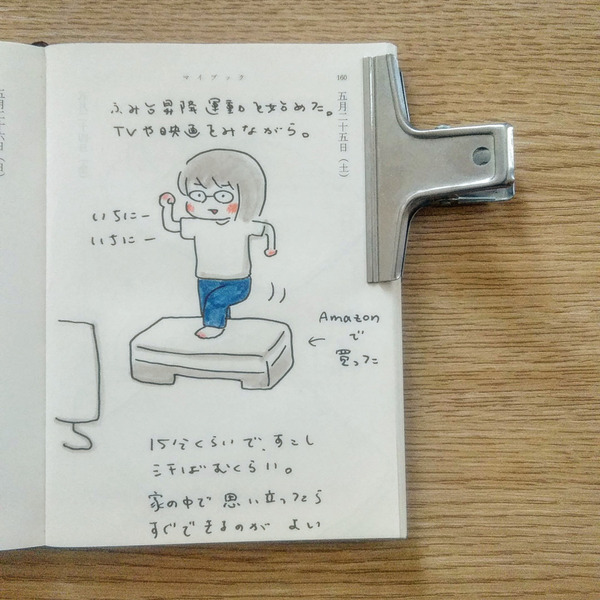 マイブック
160
五月二十五日(土)
ふみ台昇降運動を始めた。
TVや映画をみながら。
いちにー
いちにー
Amazon
で
買った
←
15分くらいで、すこし
汗ばむくらい。
家の中で思い立ったら
すぐできるのがよい
五月二十六日(日)